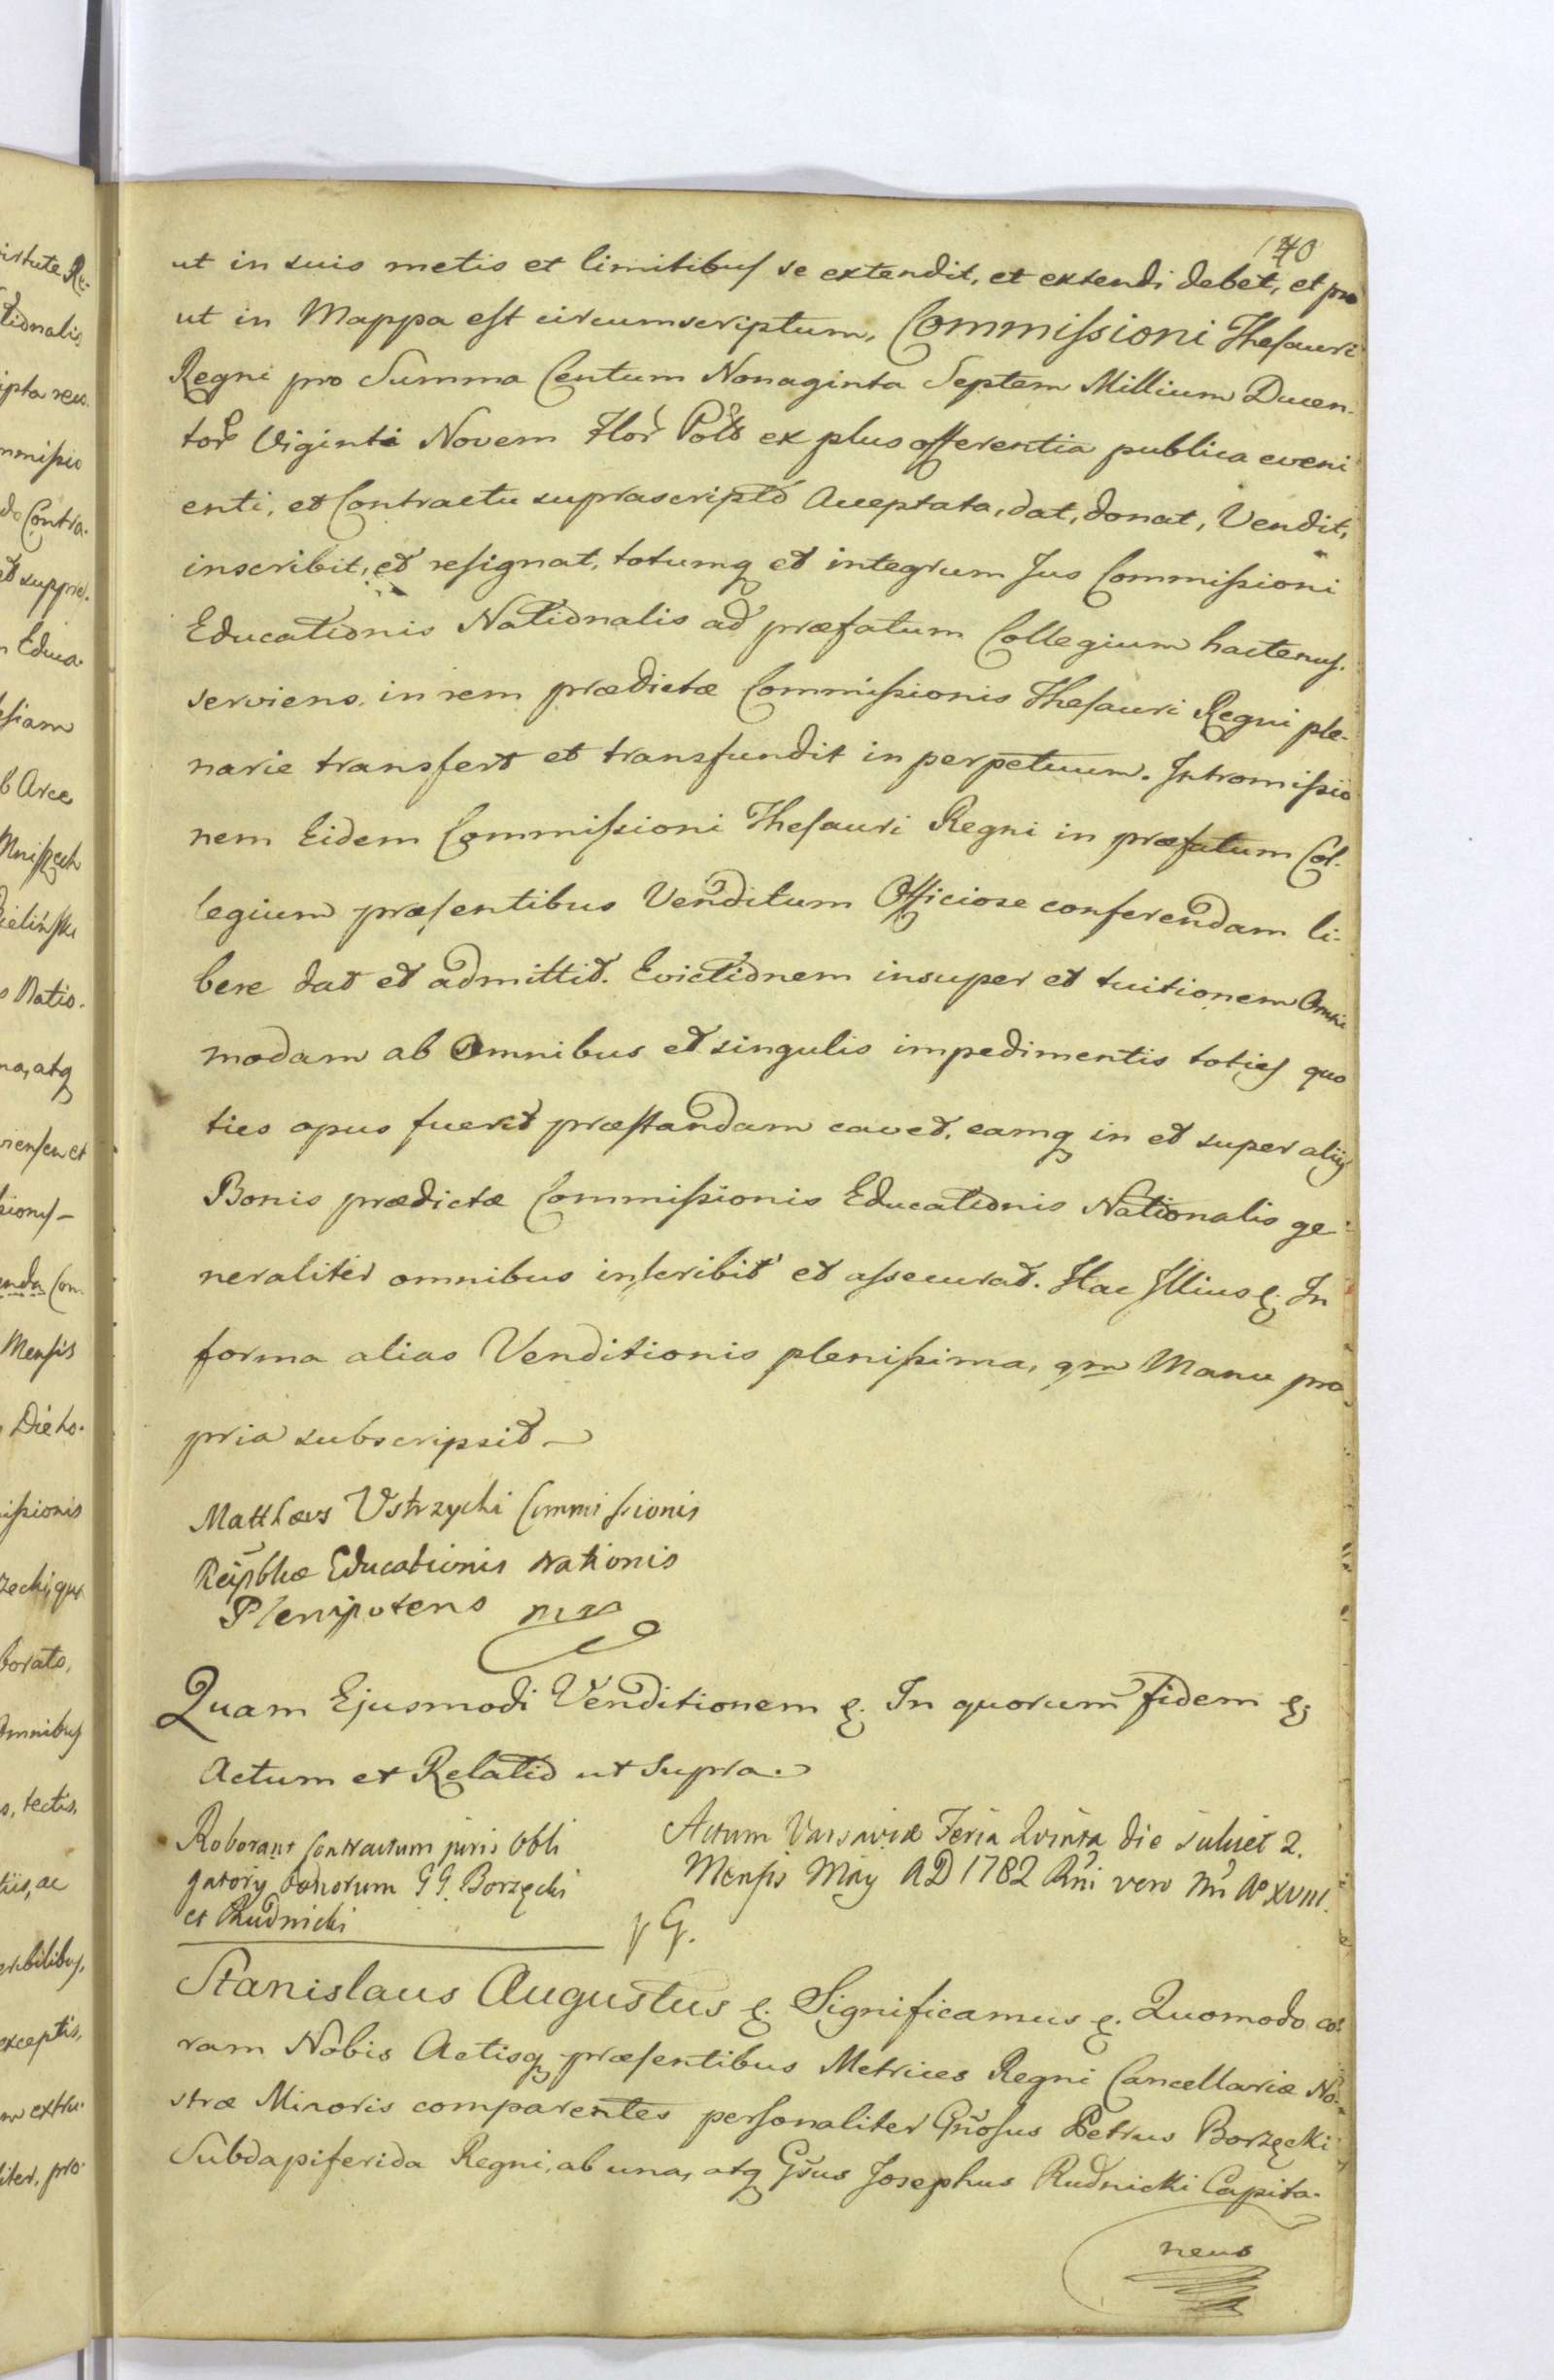 140
ut in suis metis et limitibus se extendit, et extendi debet, et pro
ut in Mappa est circumscriptum, Commissioni Thesauri
Regni pro Summa Centum Nonaginta Septem Millium Ducen-
tor Viginti Novem Flor Pol ex plus offerentia publica eveni
enti, et Contractu suprascripto Acceptata, dat, donat, Vendit,
inscribit, et resignat, totumq et integrum Jus Commissioni
Educationis Nationalis ad præfatum Collegium hactenus
serviens in rem prædictæ Commissionis Thesauri Regni ple-
narie transfert et transfundit in perpetuum. Intromissio
nem Eidem Commissioni Thesauri Regni in præfatum Col-
legium præsentibus Venditum Officiose conferendam li-
bere dat et admittit. Evictionem insuper et tuitionem Omni
modam ab Omnibus et singulis impedimentis toties quo
ties opus fuerit præstandam cavet, eamq in et super aliis
Bonis prædictæ Commissionis Educationis Nationalis ge-
neraliter omnibus inscribit et assecurat. Hac Illius &. In
forma alias Venditionis plenissima, qm Manu pro
pria subscripsit
Matthæus Ustrzycki Commissionis
Reipblcæ Educationis Nationis
Plenipotens mp
Quam Ejusmodi Venditionem &. In quorum fidem &
Actum et Relatio ut Supra.
Roborant Contractum juris Obli
gatorÿ Bonorum GG. Borzęcki
et Rudnicki
Actum Varsaviæ Feria Quinta die scilicet 2.
Mensis May AD 1782 Rni vero Nri Aº XVIII.
Stanislaus Augustus &. Significamus &. Quomodo co-
ram Nobis Actisq præsentibus Metrices Regni Cancellariæ No-
stræ Minoris comparentes personaliter Gnosus Petrus Borzęcki
Subdapiferida Regni, ab una, atq Gsus Josephus Rudnicki Capita-
neus